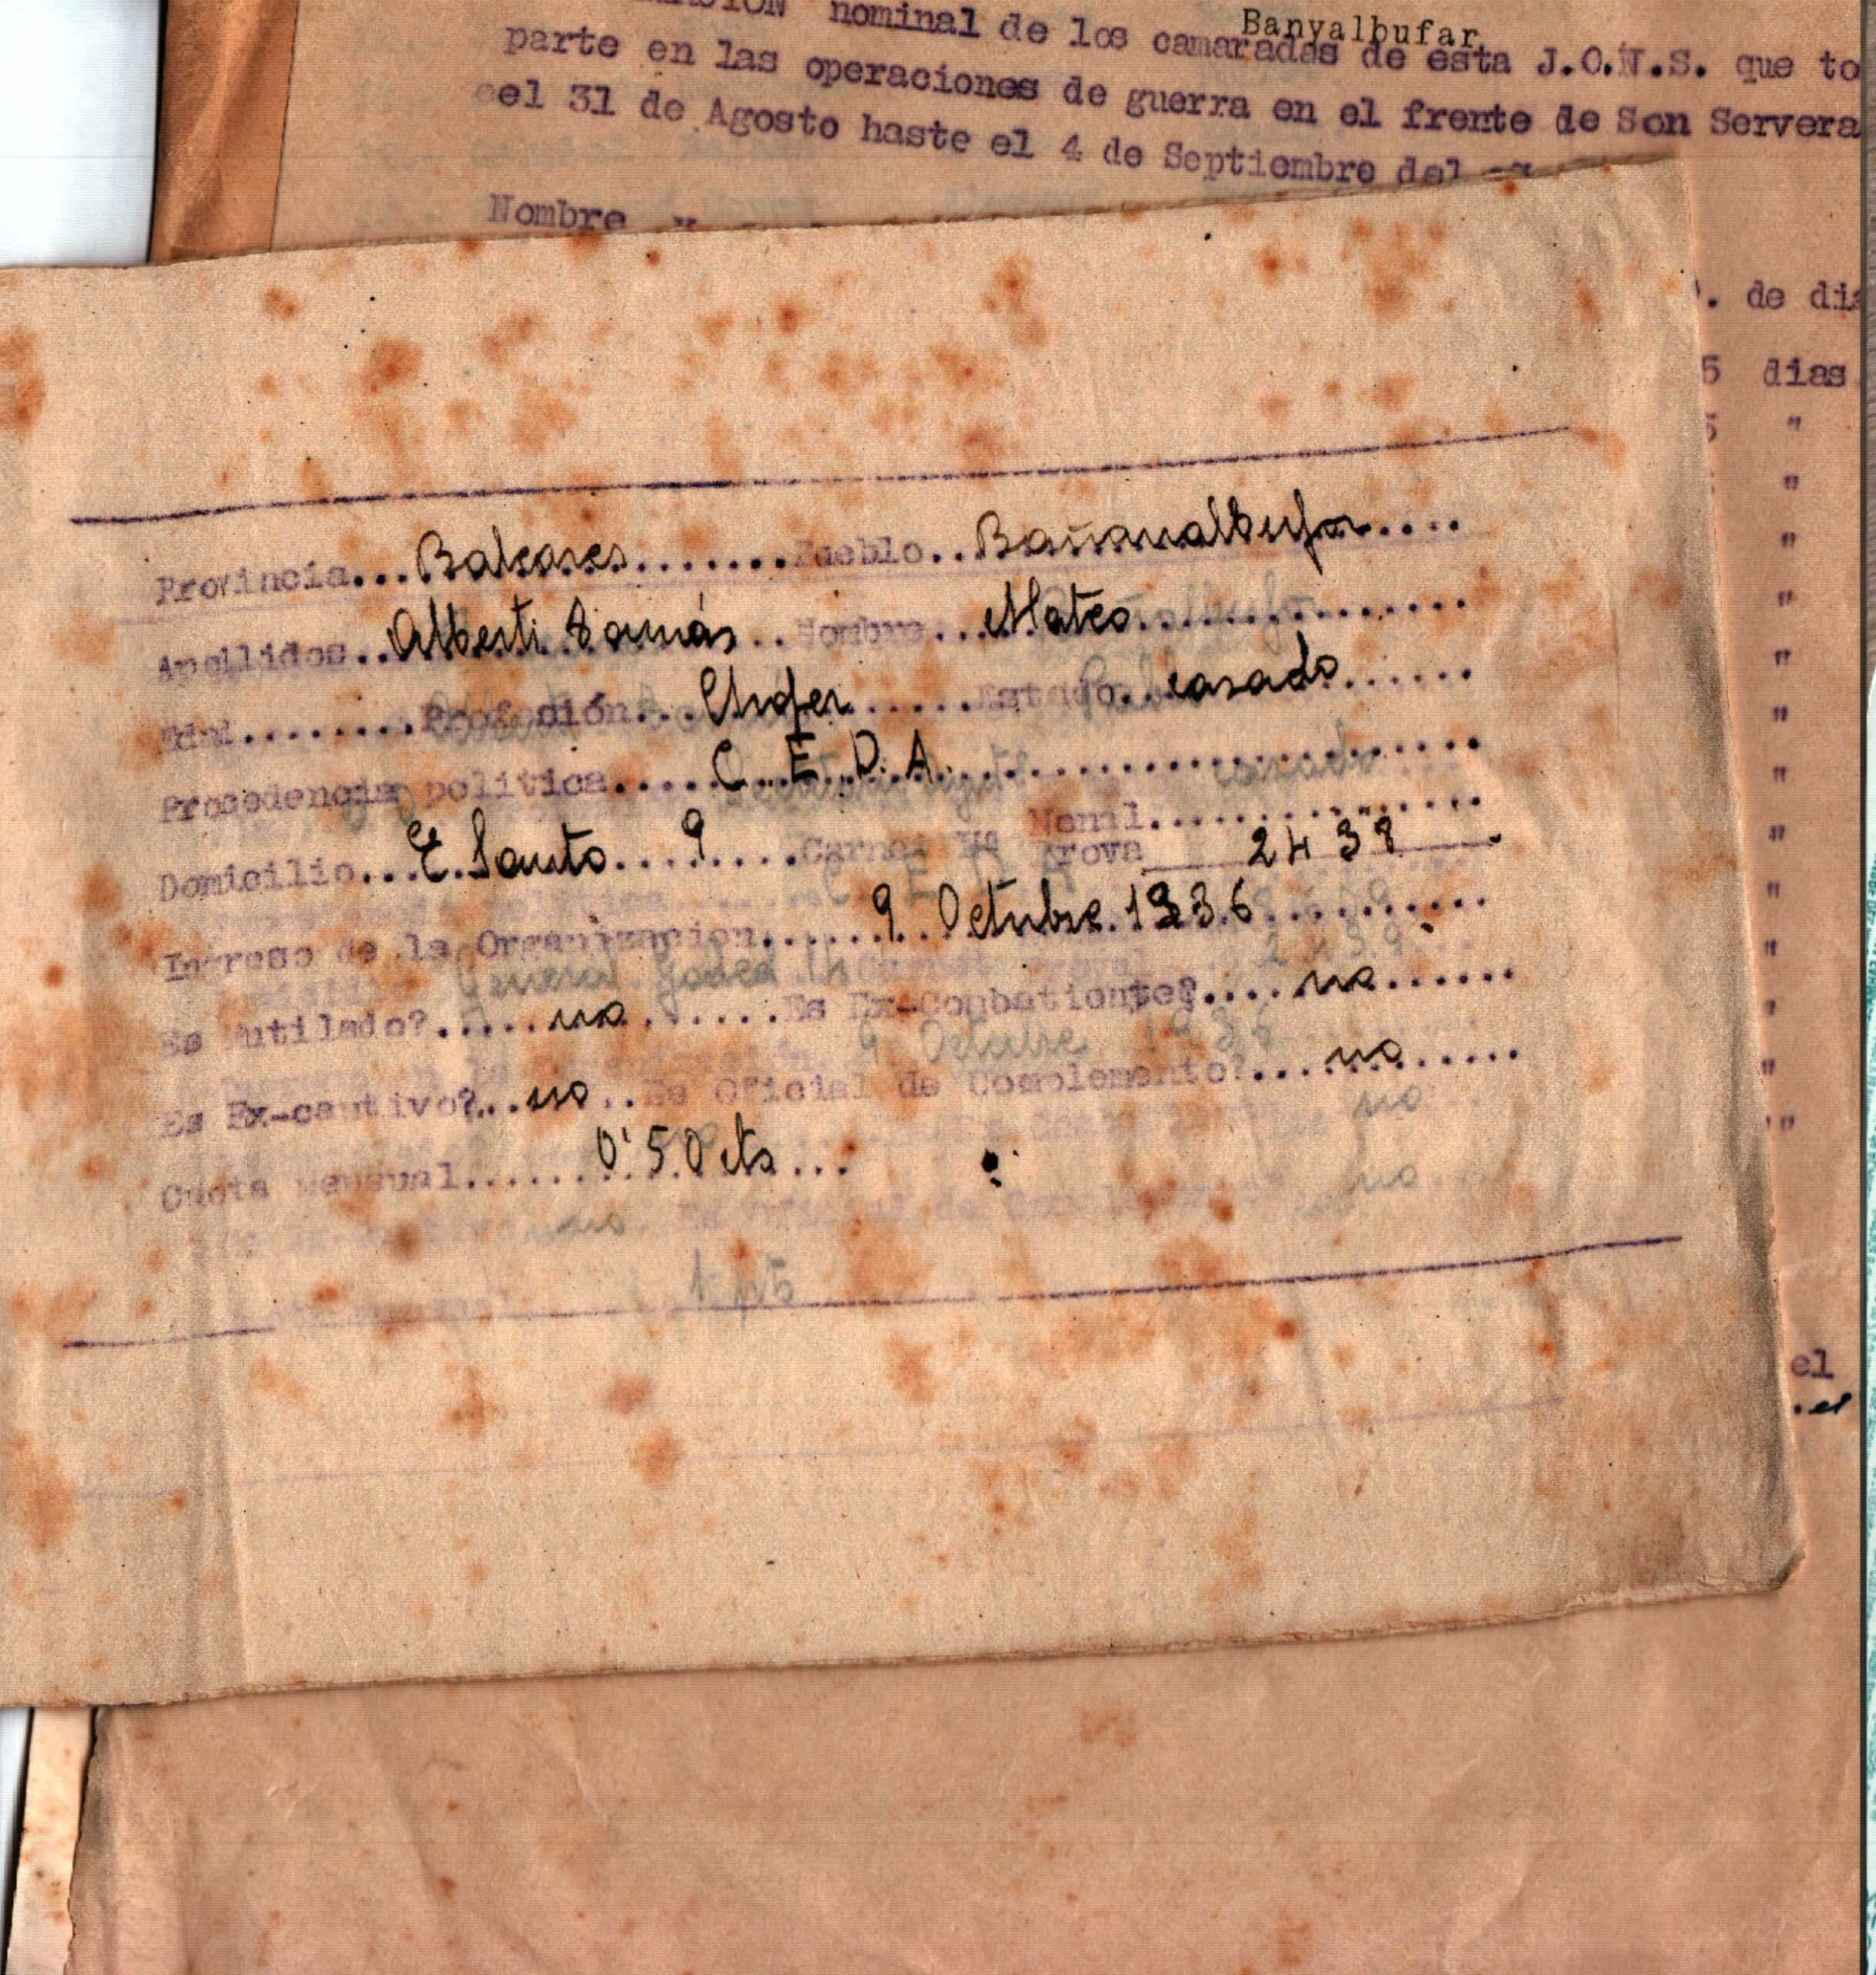 Banyalbufar
nominal de los camaradas de esta J.O.N.S. que to
parte en las operaciones de guerra en el frente de Son Servera
el 31 de Agosto haste el 4 de Septiembre del
Nombre y
. de dia
5 dias
5 "
"
"
"
"
"
"
"
"
"
"
"
"
Provincia...Baleares.......Pueblo..Bañanalbufar....
Apellidos..Alberti Tomás..Nombre...Mateo..............
Edad........Profesión...Chofer......Estado..casado......
Procedencia política.....C.E.D.A......................
Nonal..............
Domicilio...E. Santo....9....Carnet Nº Prova 2438
Ingreso de la Organizacion......9..Octubre.1936..........
Es Mutilado?.....no.......Es Ex-Conbatiente?....no......
Es Ex-cautivo?..no..Es Oficial de Complemento?...no.....
Cuota mensual......0'50 cts...
1 pts
el
.el